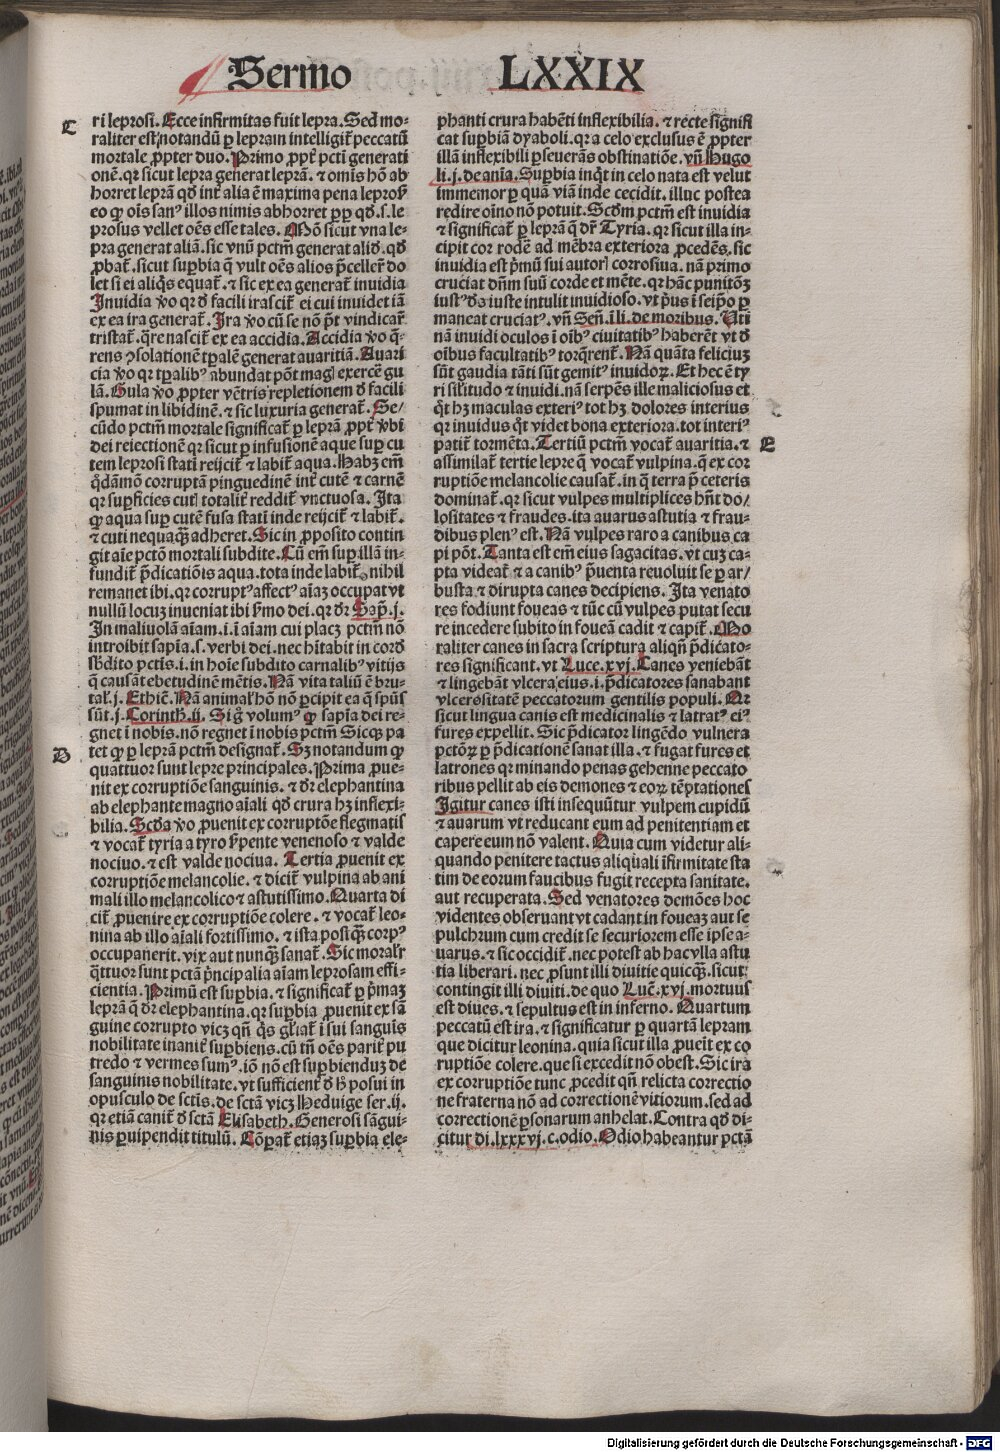 Sermo LXXIX
C
ri leprosi. Ecce infirmitas fuit lepra. Sed mo-
raliter est notandũ ꝑ lepram intelligit̃ peccatũ
mortale ꝓpter duo. Primo ꝓpt̃ pcti generati
onẽ. qꝛ sicut lepra generat leprã. ⁊ omis hõ ab
horret leprã qđ int̃ alia ẽ maxima pena leproſꝭ
eo ꝙ oĩs sanꝰ illos nimis abhorret ꝓp qđ .s. le
prosus vellet oẽs esse tales. Mõ sicut vna le-
pra generat aliã. sic vnũ pctm̃ generat aliđ. qđ
ꝓbat̃. sicut suꝑbia q̃ vult oẽs alios p̃celler̃ do
let si ei aliq̃s equat̃. ⁊ sic ex ea generat̃ inuidia
Inuidia ꝟo qꝛ đ facili irascit̃ ei cui inuidet iã
ex ea ira generat̃. Ira ꝟo cũ se nõ p̃t vindicar̃
tristat̃. q̃re nascit̃ ex ea accidia. Accidia ꝟo q̃-
rens ꝯsolationẽ tꝑalẽ generat auaritiã. Auari
cia ꝟo qꝛ tꝑalibꝰ abundat põt magꝭ exercẽ gu
lã. Gula ꝟo ꝓpter vẽtris repletionem đ facili
spumat in libidinẽ. ⁊ sic luxuria generat̃. Se/
cũdo pctm̃ mortale significat̃ ꝑ leprã ꝓpt̃ ꝟbi
dei reiectionẽ qꝛ sicut ꝑ infusionẽ aque suꝑ cu
tem leprosi statĩ reijcit̃ ⁊ labit̃ aqua. Habꝫ em̃
q̇dãmõ corruptã pinguedinẽ int̃ cutẽ ⁊ carnẽ
qꝛ suꝑficies cutꝭ totalit̃ reddit̃ vnctuosa. Ita
ꝙ aqua suꝑ cutẽ fusa statĩ inde reijcit̃ ⁊ labit̃.
⁊ cuti nequaꝙ̃ adheret. Sic in ꝓposito contin
git aĩe pctõ mortali subdite. Cũ em̃ suꝑ illã in-
fundit̃ p̃dicatiõis aqua. tota inde labit̃. nihil
remanet ibi. qꝛ corruptꝰ affectꝰ aĩaꝫ occupat vt
nullũ locuꝫ inueniat ibi ẜmo dei. qꝛ dr̃ Sap̃. j.
In maliuolã aĩam. i. ĩ aĩam cui placꝫ pctm̃ nõ
introibit sapĩa .s. verbi dei. nec hĩtabit in corđ
sb̃dito pctis. i. in hoĩe subdito carnalibꝰ vitijs
q̃ causãt ebetudinẽ mẽtis. Nã vita taliũ ẽ bru-
tal̃. j. Ethic̃. Nã animal̃ hõ nõ ꝑcipit ea q̃ sp̃us
sũt. j. Corinth̃. ij. Sig̃ volumꝰ ꝙ sapĩa dei re-
gnet ĩ nobis. nõ regnet ĩ nobis pctm̃ Sicqꝫ pa
D
tet ꝙ ꝑ leprã pctm̃ designat̃. Sꝫ notandum ꝙ
quattuor sunt lepre principales. Prima ꝓue-
nit ex corruptiõe sanguinis. ⁊ dr̃ elephantina
ab elephante magno aĩali qđ crura hꝫ inflexi-
bilia. Scđa ꝟo ꝓuenit ex corruptõe flegmatis
⁊ vocat̃ tyria a tyro ẜpente venenoso ⁊ valde
nociuo. ⁊ est valde nociua. Tertia ꝓuenit ex
corruptiõe melancolie. ⁊ dicit̃ vulpina ab ani
mali illo melancolico ⁊ astutissimo. Quarta di
cit̃ ꝓuenire ex corruptiõe colere. ⁊ vocat̃ leo-
nina ab illo aĩali fortissimo. ⁊ ista postꝙ̃ corpꝰ
occupauerit. vix aut nunꝙ̃ sanat̃. Sic moralr̃
q̃ttuor sunt pctã p̃ncipalia aĩam leprosam effi-
cientia. Primũ est suꝑbia. ⁊ significat̃ ꝑ p̃maꝫ
leprã q̃ dr̃ elephantina. qꝛ suꝑbia ꝓuenit ex sã
guine corrupto vicꝫ qñ q̃s gl̃iat̃ ĩ sui sanguĩs
nobilitate inanit̃ suꝑbiens. cũ tñ oẽs parit̃ pu
tredo ⁊ vermes sumꝰ. iõ nõ est suꝑbienduꝫ de
sanguinis nobilitate. vt sufficient̃ đ h̃ posui in
opusculo de sctĩs. de sctã vicꝫ Heduige ser. ij.
qꝛ etiã canit̃ đ sctã Elisabeth. Generosi sãgui-
nis ꝑuipendit titulũ. Cõpat̃ etiaꝫ suꝑbia ele-
phanti crura habẽti inflexibilia. ⁊ recte signifi
cat suꝑbiã dyaboli. qꝛ a celo exclusus ẽ ꝓpter
illã inflexibilẽ ꝑseuerãs obstinatiõe. vñ Hugo
li. j. de anĩa. Suꝑbia inq̃t in celo nata est velut
immemor ꝑ quã viã inde cecidit. illuc postea
redire oĩno nõ potuit. Scđm pctm̃ est inuidia
⁊ significat̃ ꝑ leprã q̃ dr̃ Tyria. qꝛ sicut illa in-
cipit cor rodẽ ad mẽbra exteriora ꝓcedẽs. sic
inuidia est p̃mũ sui autorꝭ corrosiua. nã primo
cruciat dñm suũ corde et mẽte. qꝛ hãc punitõꝫ
iustꝰ đs iuste intulit inuidioso. vt p̃us ĩ seip̃o ꝑ
maneat cruciatꝰ. vñ Sen̄. ĩ li. de moribus. Vti
nã inuidi oculos ĩ oĩbꝰ ciuitatibꝰ haberẽt vt đ
oĩbus facultatibꝰ torq̃rent̃. Nã quãta feliciuꝫ
sũt gaudia tãti sũt gemitꝰ inuidoꝝ. Et hec ẽ ty
ri sil̃itudo ⁊ inuidi. nã serpẽs ille maliciosus et
q̃t hꝫ maculas exteriꝰ tot hꝫ dolores interius
qꝛ inuidus q̃t videt bona exteriora. tot interiꝰ
E
patit̃ tormẽta. Tertiũ pctm̃ vocat̃ auaritia. ⁊
assimilat̃ tertie lepre q̃ vocat̃ vulpina. q̃ ex cor
ruptiõe melancolie causat̃. in q̃ terra p̃ ceteris
dominat̃. qꝛ sicut vulpes multiplices hñt do/
lositates ⁊ fraudes. ita auarus astutia ⁊ frau-
dibus plenꝰ est. Nã vulpes raro a canibus ca
pi põt. Tanta est em̃ eius sagacitas. vt cuꝫ ca-
pta videat̃ ⁊ a canibꝰ p̃uenta reuoluit se ꝑ ar/
busta ⁊ dirupta canes decipiens. Ita venato
res fodiunt foueas ⁊ tũc cũ vulpes putat secu
re incedere subito in foueã cadit ⁊ capit̃. Mo
raliter canes in sacra scriptura aliqñ p̃dicato-
res significant. vt Luce. xvj. Canes veniebãt
⁊ lingebãt vlcera eius. i. p̃dicatores sanabant
vlcerositatẽ peccatorum gentilis populi. Nã
sicut lingua canis est medicinalis ⁊ latratꝰ eiꝰ
fures expellit. Sic p̃dicator lingẽdo vulnera
pctõꝝ ꝑ p̃dicationẽ sanat illa. ⁊ fugat fures et
latrones qꝛ minando penas gehenne peccato
ribus pellit ab eis demones ⁊ eoꝝ tẽptationes
Igitur canes isti insequũtur vulpem cupidũ
⁊ auarum vt reducant eum ad penitentiam et
capere eum nõ valent. Quia cum videtur ali-
quando penitere tactus aliquali ĩfirmitate sta
tim de eorum faucibus fugit recepta sanitate.
aut recuperata. Sed venatores demões hoc
videntes obseruant vt cadant in foueaꝫ aut se
pulchrum cum credit se securiorem esse ipse a-
uarus. ⁊ sic occidit̃. nec potest ab hac vlla astu
tia liberari. nec ꝓsunt illi diuitie quicꝙ̃. sicut
contingit illi diuiti. de quo Luc̃. xvj. mortuus
est diues. ⁊ sepultus est in inferno. Quartum
peccatũ est ira. ⁊ significatur ꝑ quartã lepram
que dicitur leonina. quia sicut illa ꝓueĩt ex co
ruptiõe colere. que si excedit nõ obest. Sic ira
ex corruptiõe tunc ꝓcedit qñ relicta correctio
ne fraterna nõ ad correctionẽ vitiorum. sed ad
correctionẽ ꝑsonarum anhelat. Contra qđ di-
citur di. lxxxvj. c. odio. Odio habeantur pctã
Digitalisierung gefördert durch die Deutsche Forschungsgemeinschaft - DFG